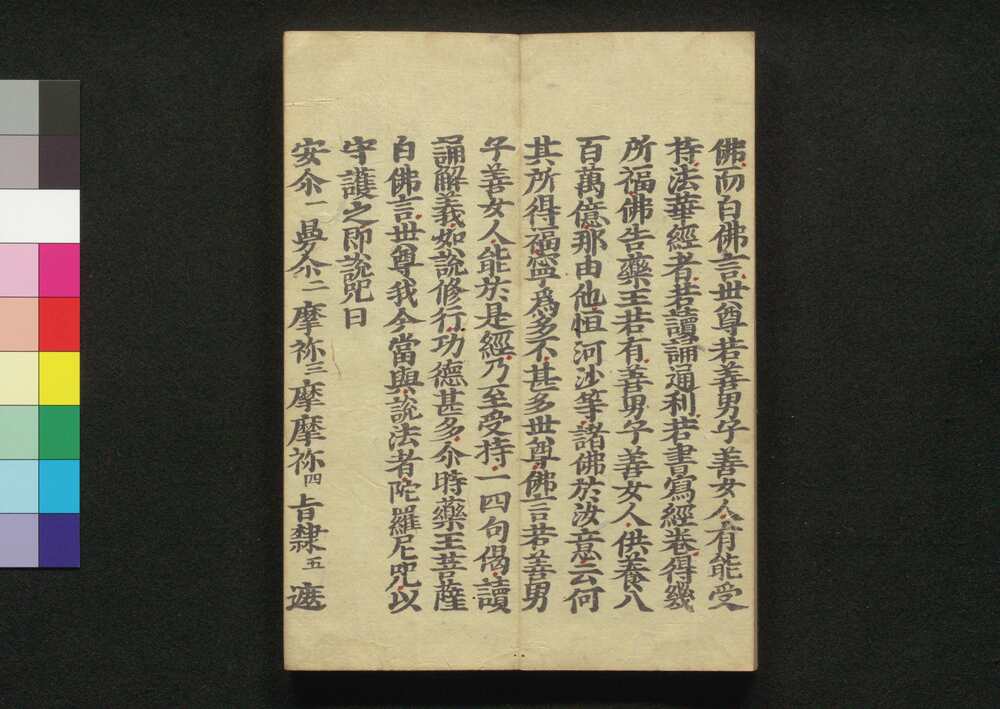 佛而白佛言世尊若善男子善女人有能受
持法華經者若讀誦通利若書寫經卷得幾
所福佛告藥王若有善男子善女人供養八
百萬億那由他恒河沙等諸佛於汝意云何
其所得福寧爲多不甚多世尊佛言若善男
子善女人能於是經乃至受持一四句偈讀
誦解義如說修行功德甚多尒時藥王菩薩
白佛言世尊我今當與說法者陀羅尼咒以
守護之即說咒曰
安尒一曼尒二摩祢三摩摩祢四旨隸五遮